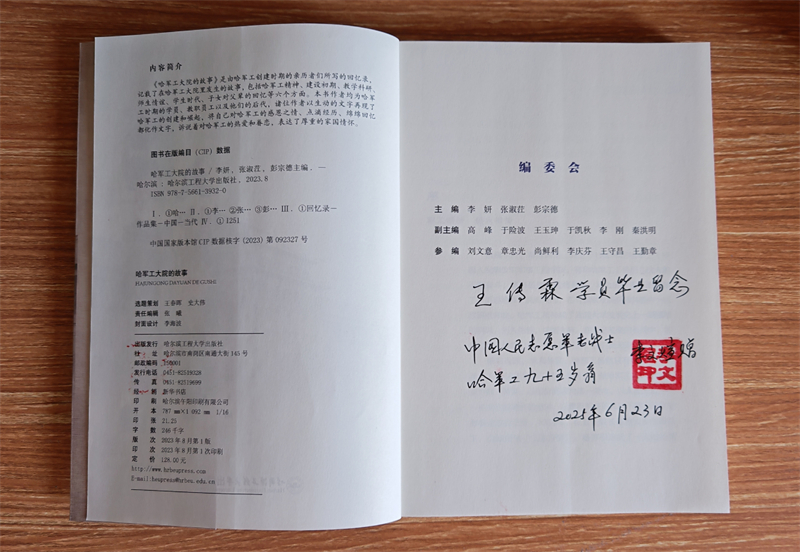 内容简介
《哈军工大院的故事》是由哈军工创建时期的亲历者们所写的回忆录，
记载了在哈军工大院里发生的故事，包括哈军工精神、建设初期、教学科研、
师生情谊、学生时代、子女对父辈的回忆等六个方面。本书作者均为哈军
工时期的学员、教职员工以及他们的后代，诸位作者以生动的文字再现了
哈军工的创建和崛起，将自己对哈军工的感恩之情、点滴经历、绵绵回忆
都化作文字，诉说着对哈军工的热爱和眷恋，表达了厚重的家国情怀。
图书在版编目（CIP）数据
哈军工大院的故事 / 李妍，张淑茳，彭宗德主编. —
哈尔滨：哈尔滨工程大学出版社，2023.8
ISBN 978-7-5661-3932-0
Ⅰ. ①哈… Ⅱ. ①李… ②张… ③彭… Ⅲ. ①回忆录—
作品集—中国—当代 Ⅳ. ①I251
中国国家版本馆CIP数据核字（2023）第092327号
哈军工大院的故事
HAJUNGONG DAYUAN DE GUSHI
选题策划 王春晖 史大伟
责任编辑 张 曦
封面设计 李海波
出版发行 哈尔滨工程大学出版社
社 址 哈尔滨市南岗区南通大街145号
邮政编码 150001
发行电话 0451-82519328
传 真 0451-82519699
经 销 新华书店
印 刷 哈尔滨午阳印刷有限公司
开 本 787 mm×1 092 mm 1/16
印 张 21.25
字 数 246千字
版 次 2023年8月第1版
印 次 2023年8月第1次印刷
定 价 128.00元
http://www.hrbeupress.com
E-mail:heupress@hrbeu.edu.cn
编委会
主 编 李 妍 张淑茳 彭宗德
副主编 高 峰 于险波 王玉珅 于凯秋 李 刚 秦洪明
参 编 刘文意 章忠光 尚鲜利 李庆芬 王守昌 王勤章
王传霖 学员毕业留念
中国人民志愿军老战士
哈军工九十五岁翁
2025年6月23日